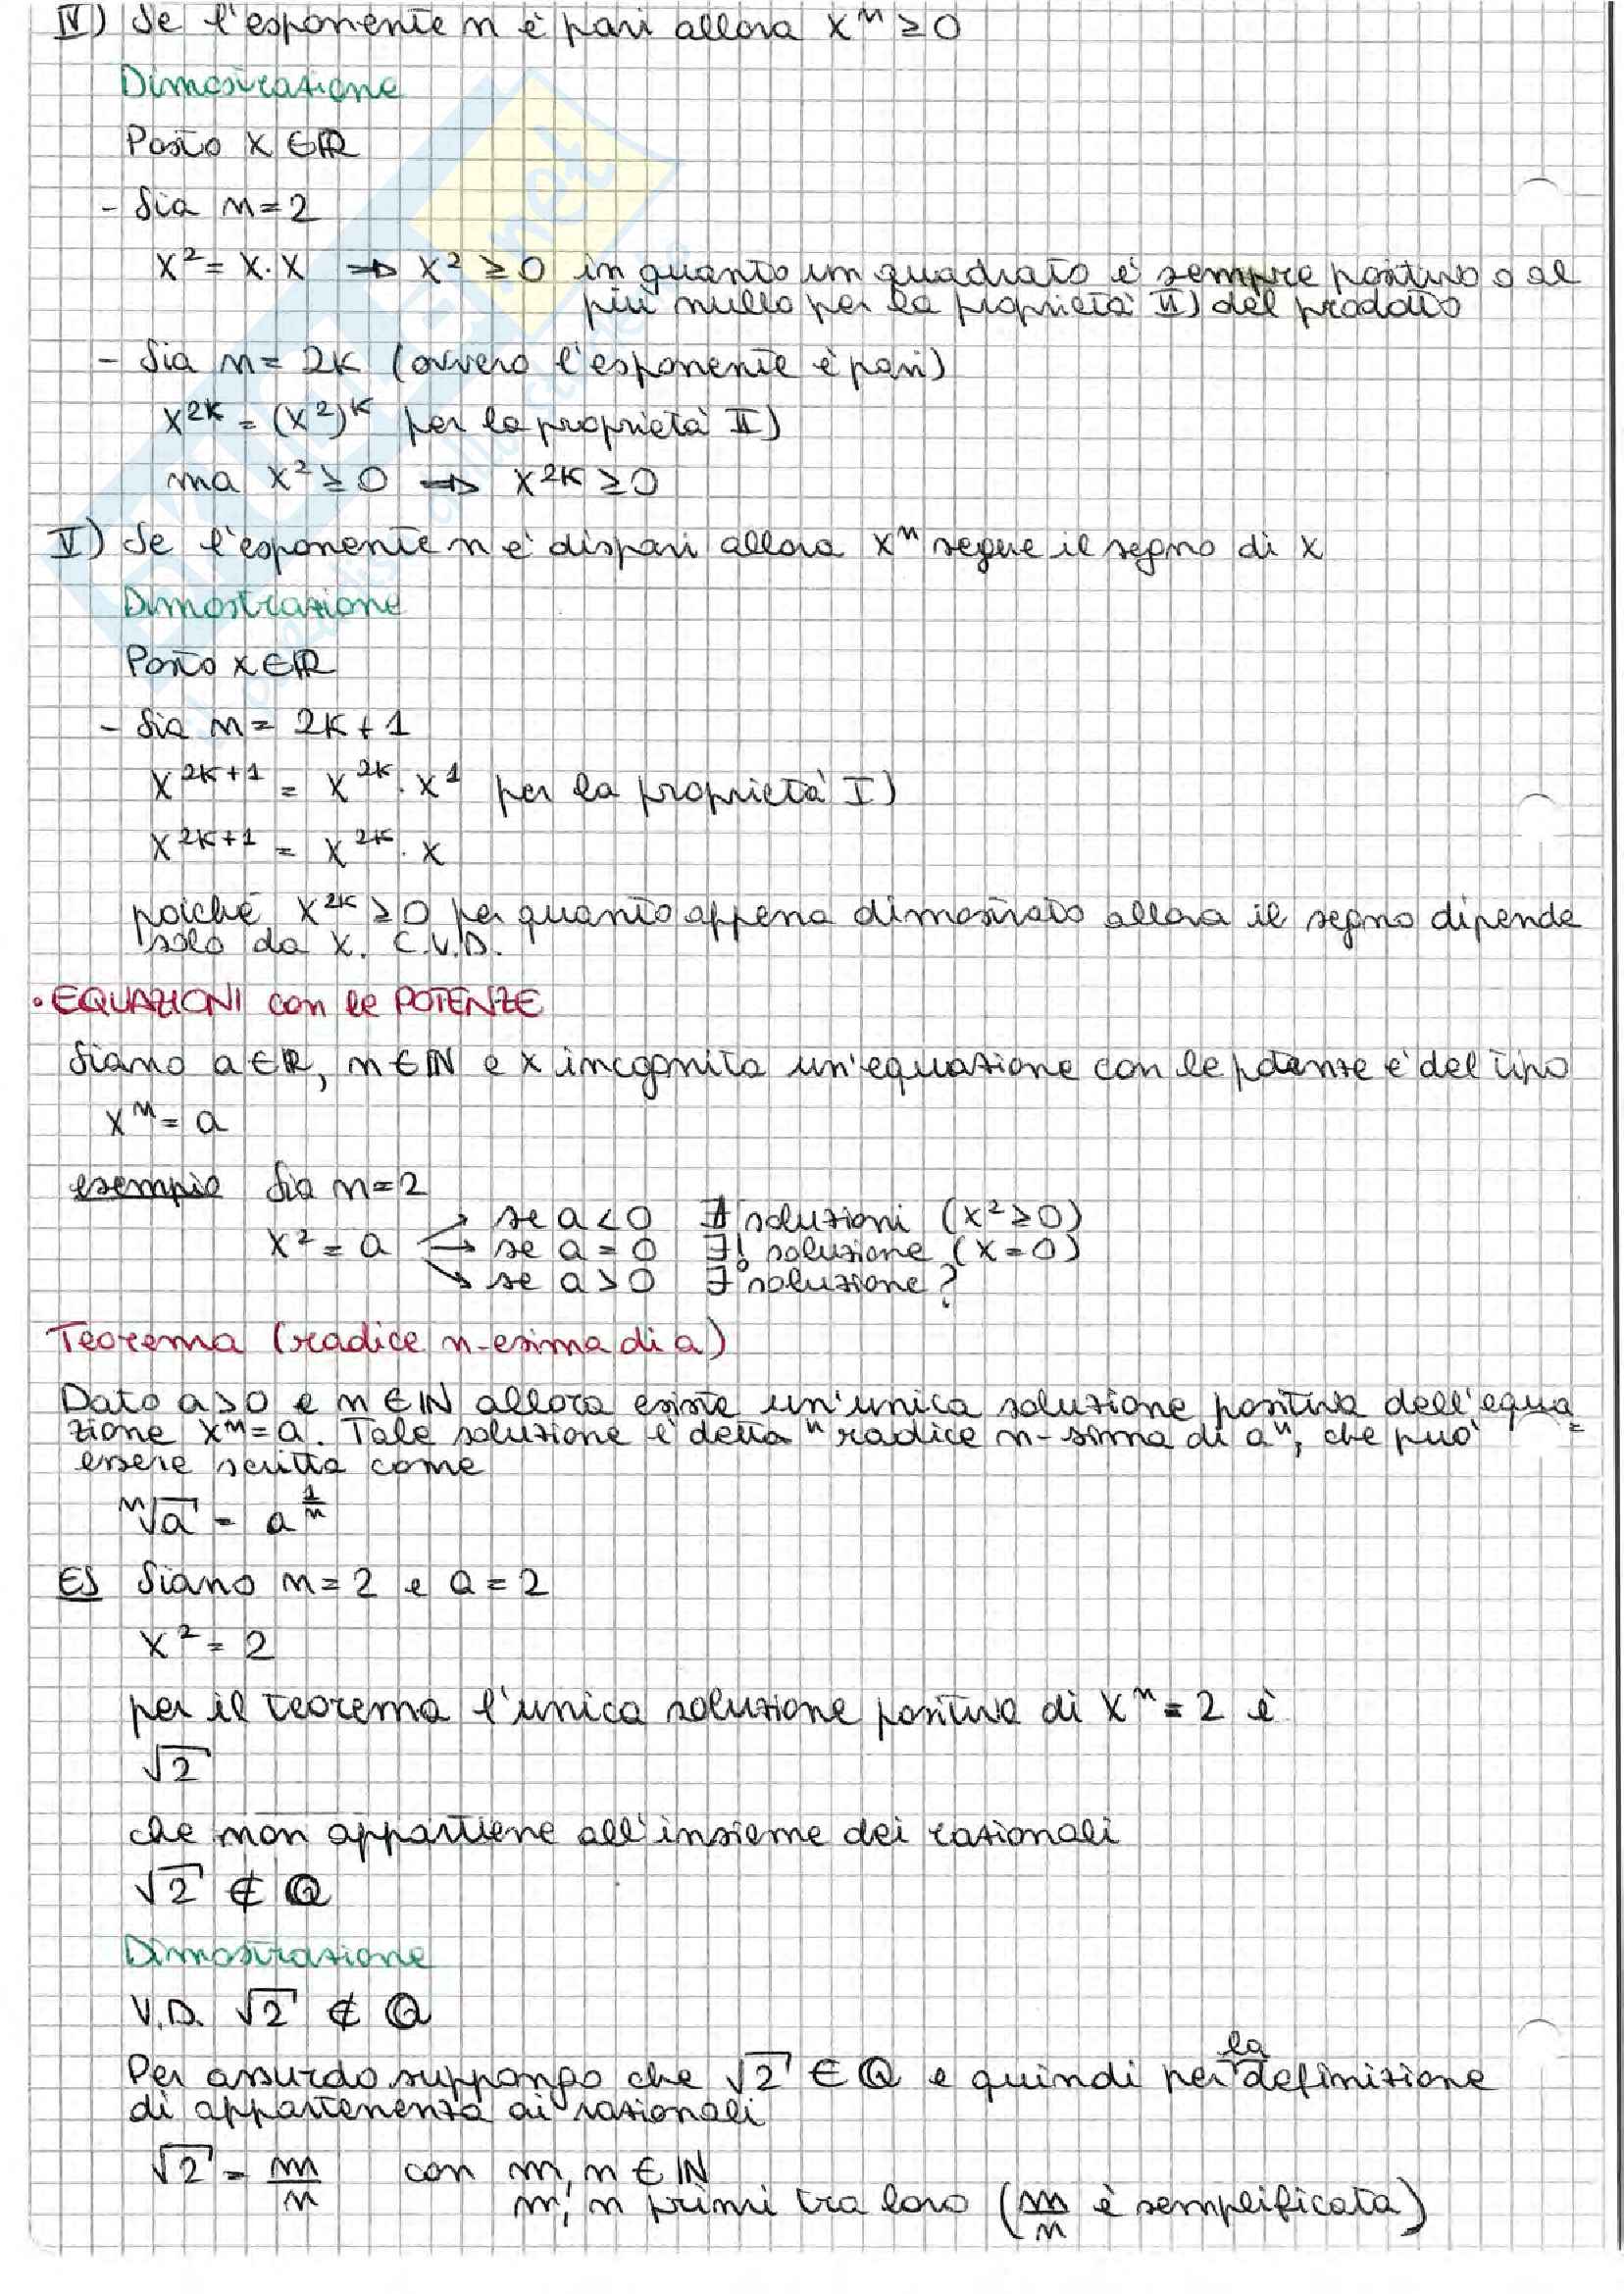 IV) Se l'esponente n è pari allora xⁿ ≥ 0
Dimostrazione
Posto x ∈ ℝ
- Sia n = 2
x² = x · x ⇒ x² ≥ 0 in quanto un quadrato è sempre positivo o al
più nullo per la proprietà VI) del prodotto
- Sia n = 2k (ovvero l'esponente è pari)
x²ᵏ = (x²)ᵏ per la proprietà II)
ma x² ≥ 0 ⇒ x²ᵏ ≥ 0
V) Se l'esponente n è dispari allora xⁿ segue il segno di x
Dimostrazione
Posto x ∈ ℝ
- Sia n = 2k + 1
x²ᵏ⁺¹ = x²ᵏ · x¹ per la proprietà I)
x²ᵏ⁺¹ = x²ᵏ · x
poiché x²ᵏ ≥ 0 per quanto appena dimostrato allora il segno dipende
solo da x. C.V.D.
• EQUAZIONI con le POTENZE
Siano a ∈ ℝ, n ∈ ℕ e x incognita un'equazione con le potenze è del tipo
xⁿ = a
esempio Sia n = 2
se a < 0 ∄ soluzioni (x² ≥ 0)
x² = a → se a = 0 ∃! soluzione (x = 0)
se a > 0 ∃ soluzione?
Teorema (radice n-esima di a)
Dato a > 0 e n ∈ ℕ allora esiste un'unica soluzione positiva dell'equa=
zione xⁿ = a. Tale soluzione è detta "radice n-sima di a", che può
essere scritta come
ⁿ√a = a^(1/n)
ES Siano n = 2 e a = 2
x² = 2
per il teorema l'unica soluzione positiva di xⁿ = 2 è
√2
che non appartiene all'insieme dei razionali
√2 ∉ ℚ
Dimostrazione
V.D. √2 ∉ ℚ
Per assurdo suppongo che √2 ∈ ℚ e quindi per la definizione
di appartenenza ai razionali
√2 = m/n con m, n ∈ ℕ
m, n primi tra loro (m/n è semplificata)